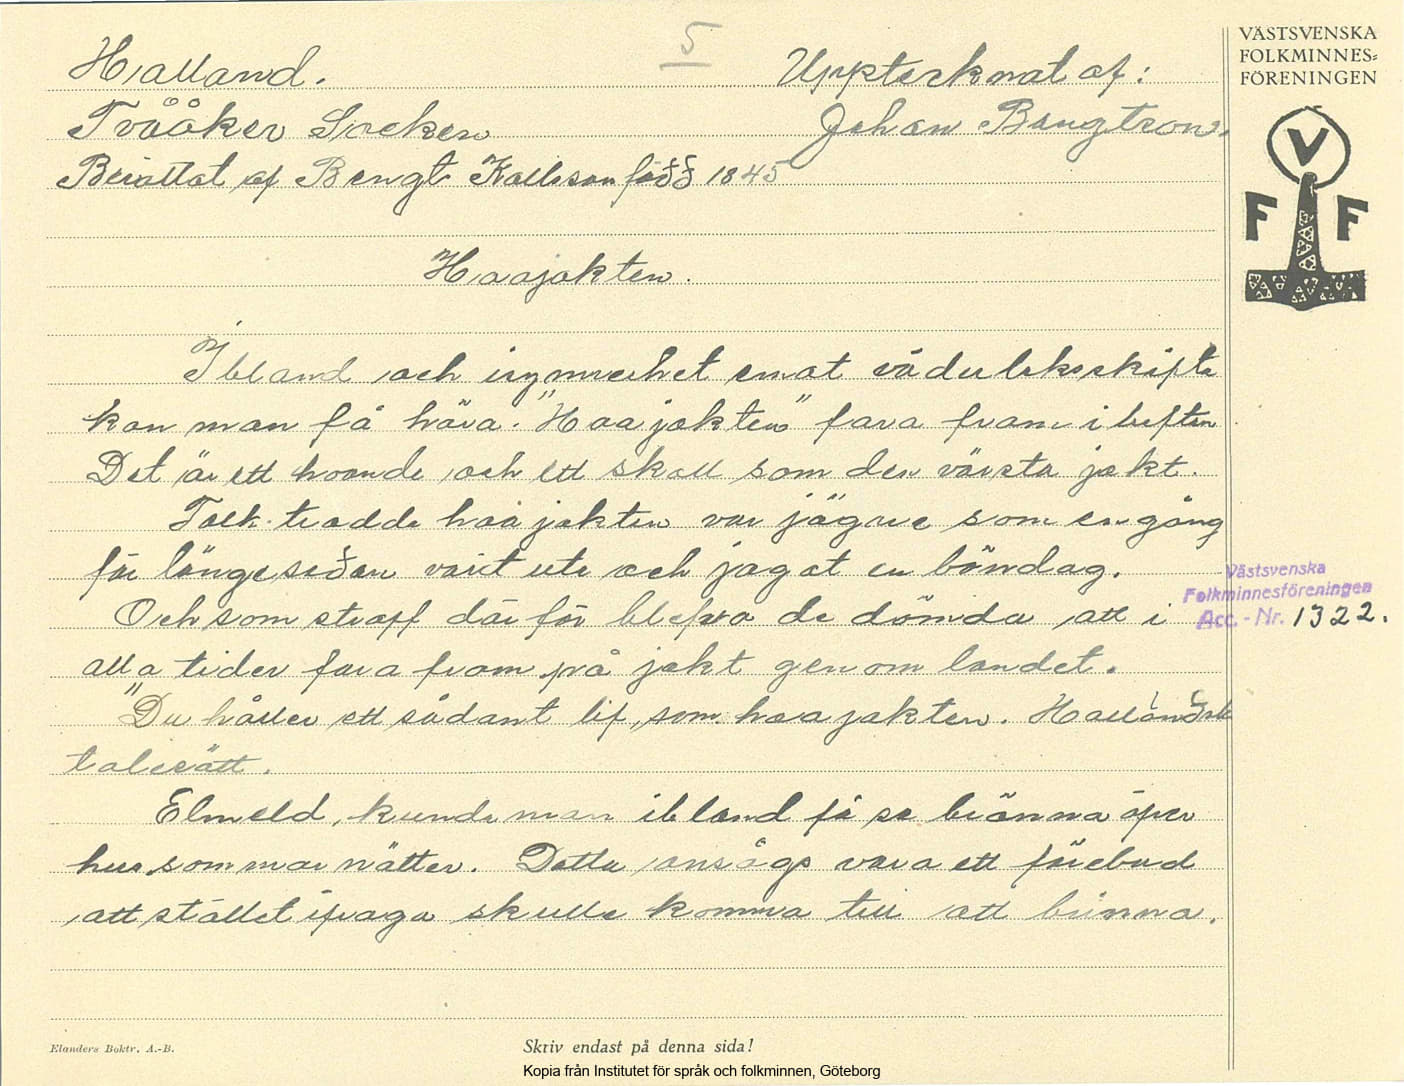 5
Halland.
Upptecknat af:
Tvååker Socken
Johan Bengtson.
Berättat af Bengt Karlsson född 1845
Haajakten.
Ibland och isynnerhet emot väderleksskifte
kan man få höra "Haajakten" fara fram i luften
Det är ett hoande och ett skall som den värsta jakt.
Folk trodde haajakten var jägare som en gång
för länge sedan varit ute och jagat en böndag.
Och som straff därför blefvo de dömda att i
alla tider fara fram på jakt genom landet.
"Du håller ett sådant lif som haajakten. Halländsk
talesätt.
Elmeld, kunde man ibland få se bränna öfver
hus sommarnätter. Detta ansågs vara ett förebud
att stället ifråga skulle komma till att brinna.
VÄSTSVENSKA
FOLKMINNES=
FÖRENINGEN
V
F F
Västsvenska
Folkminnesföreningen
Acc.-Nr. 1322.
Elanders Boktr. A.-B.
Skriv endast på denna sida!
Kopia från Institutet för språk och folkminnen, Göteborg